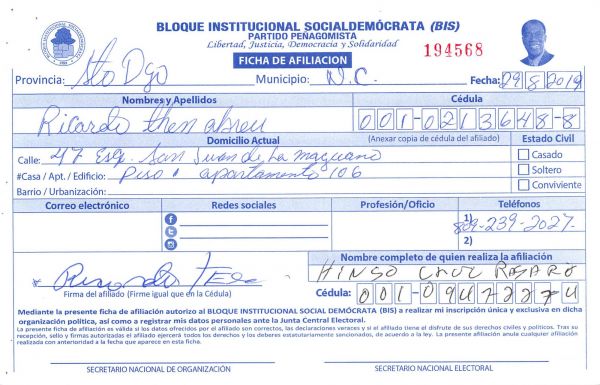 BLOQUE INSTITUCIONAL SOCIALDEMÓCRATA (BIS)
PARTIDO PEÑAGOMISTA
Libertad, Justicia, Democracia y Solidaridad
194568
FICHA DE AFILIACION
Provincia: Sto Dgo Municipio: N.C. Fecha: 29/8/2019
Nombres y Apellidos Cédula
Ricardo then abreu 001-0213648-8
Domicilio Actual (Anexar copia de cédula del afiliado) Estado Civil
Calle: 47 Esq. San Juan de La maguana Casado
#Casa / Apt. / Edificio: Piso 1 apartamento 106 Soltero
Barrio / Urbanización: Conviviente
Correo electrónico Redes sociales Profesión/Oficio Teléfonos
1) 809-239-2027-
2)
Nombre completo de quien realiza la afiliación
Ricardo
Firma del afiliado (Firme igual que en la Cédula) Cédula: 001-094
Mediante la presente ficha de afiliación autorizo al BLOQUE INSTITUCIONAL SOCIAL DEMÓCRATA (BIS) a realizar mi inscripción única y exclusiva en dicha
organización política, así como a registrar mis datos personales ante la Junta Central Electoral.
La presente ficha de afiliación es válida si los datos ofrecidos por el afiliado son correctos, las declaraciones veraces y si el afiliado tiene el disfrute de sus derechos civiles y políticos. Tras su
recepción, sello y firmas autorizadas el afiliado ejercerá todos los derechos y los deberes estatutariamente sancionados, de acuerdo a la ley. La presente afiliación anula cualquier afiliación
realizada con anterioridad a la fecha que aparece en esta ficha.
SECRETARIO NACIONAL DE ORGANIZACIÓN SECRETARIO NACIONAL ELECTORAL